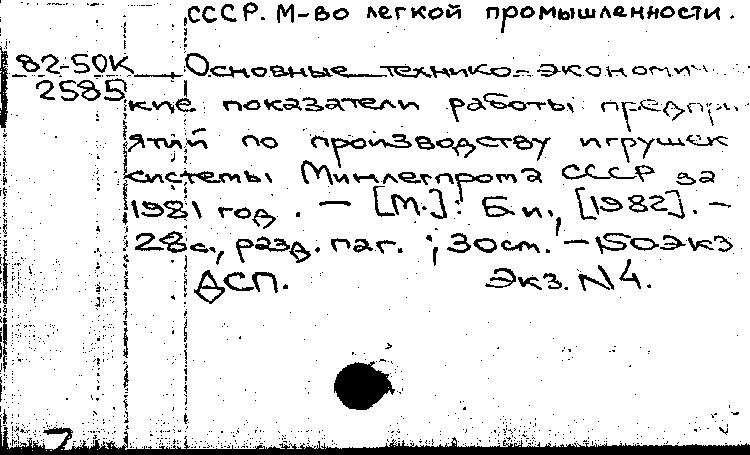 СССР. М-во легкой промышленности.
82-50К Основные технико-экономич
2585 кие показатели работы предпри
ятий по производству игрушек
системы Минлегпрома СССР за
1981 год. — [М.]: Б.и., [1982]. —
28с., разд. паг. ; 30см. — 150экз
ДСП. Экз. N4.